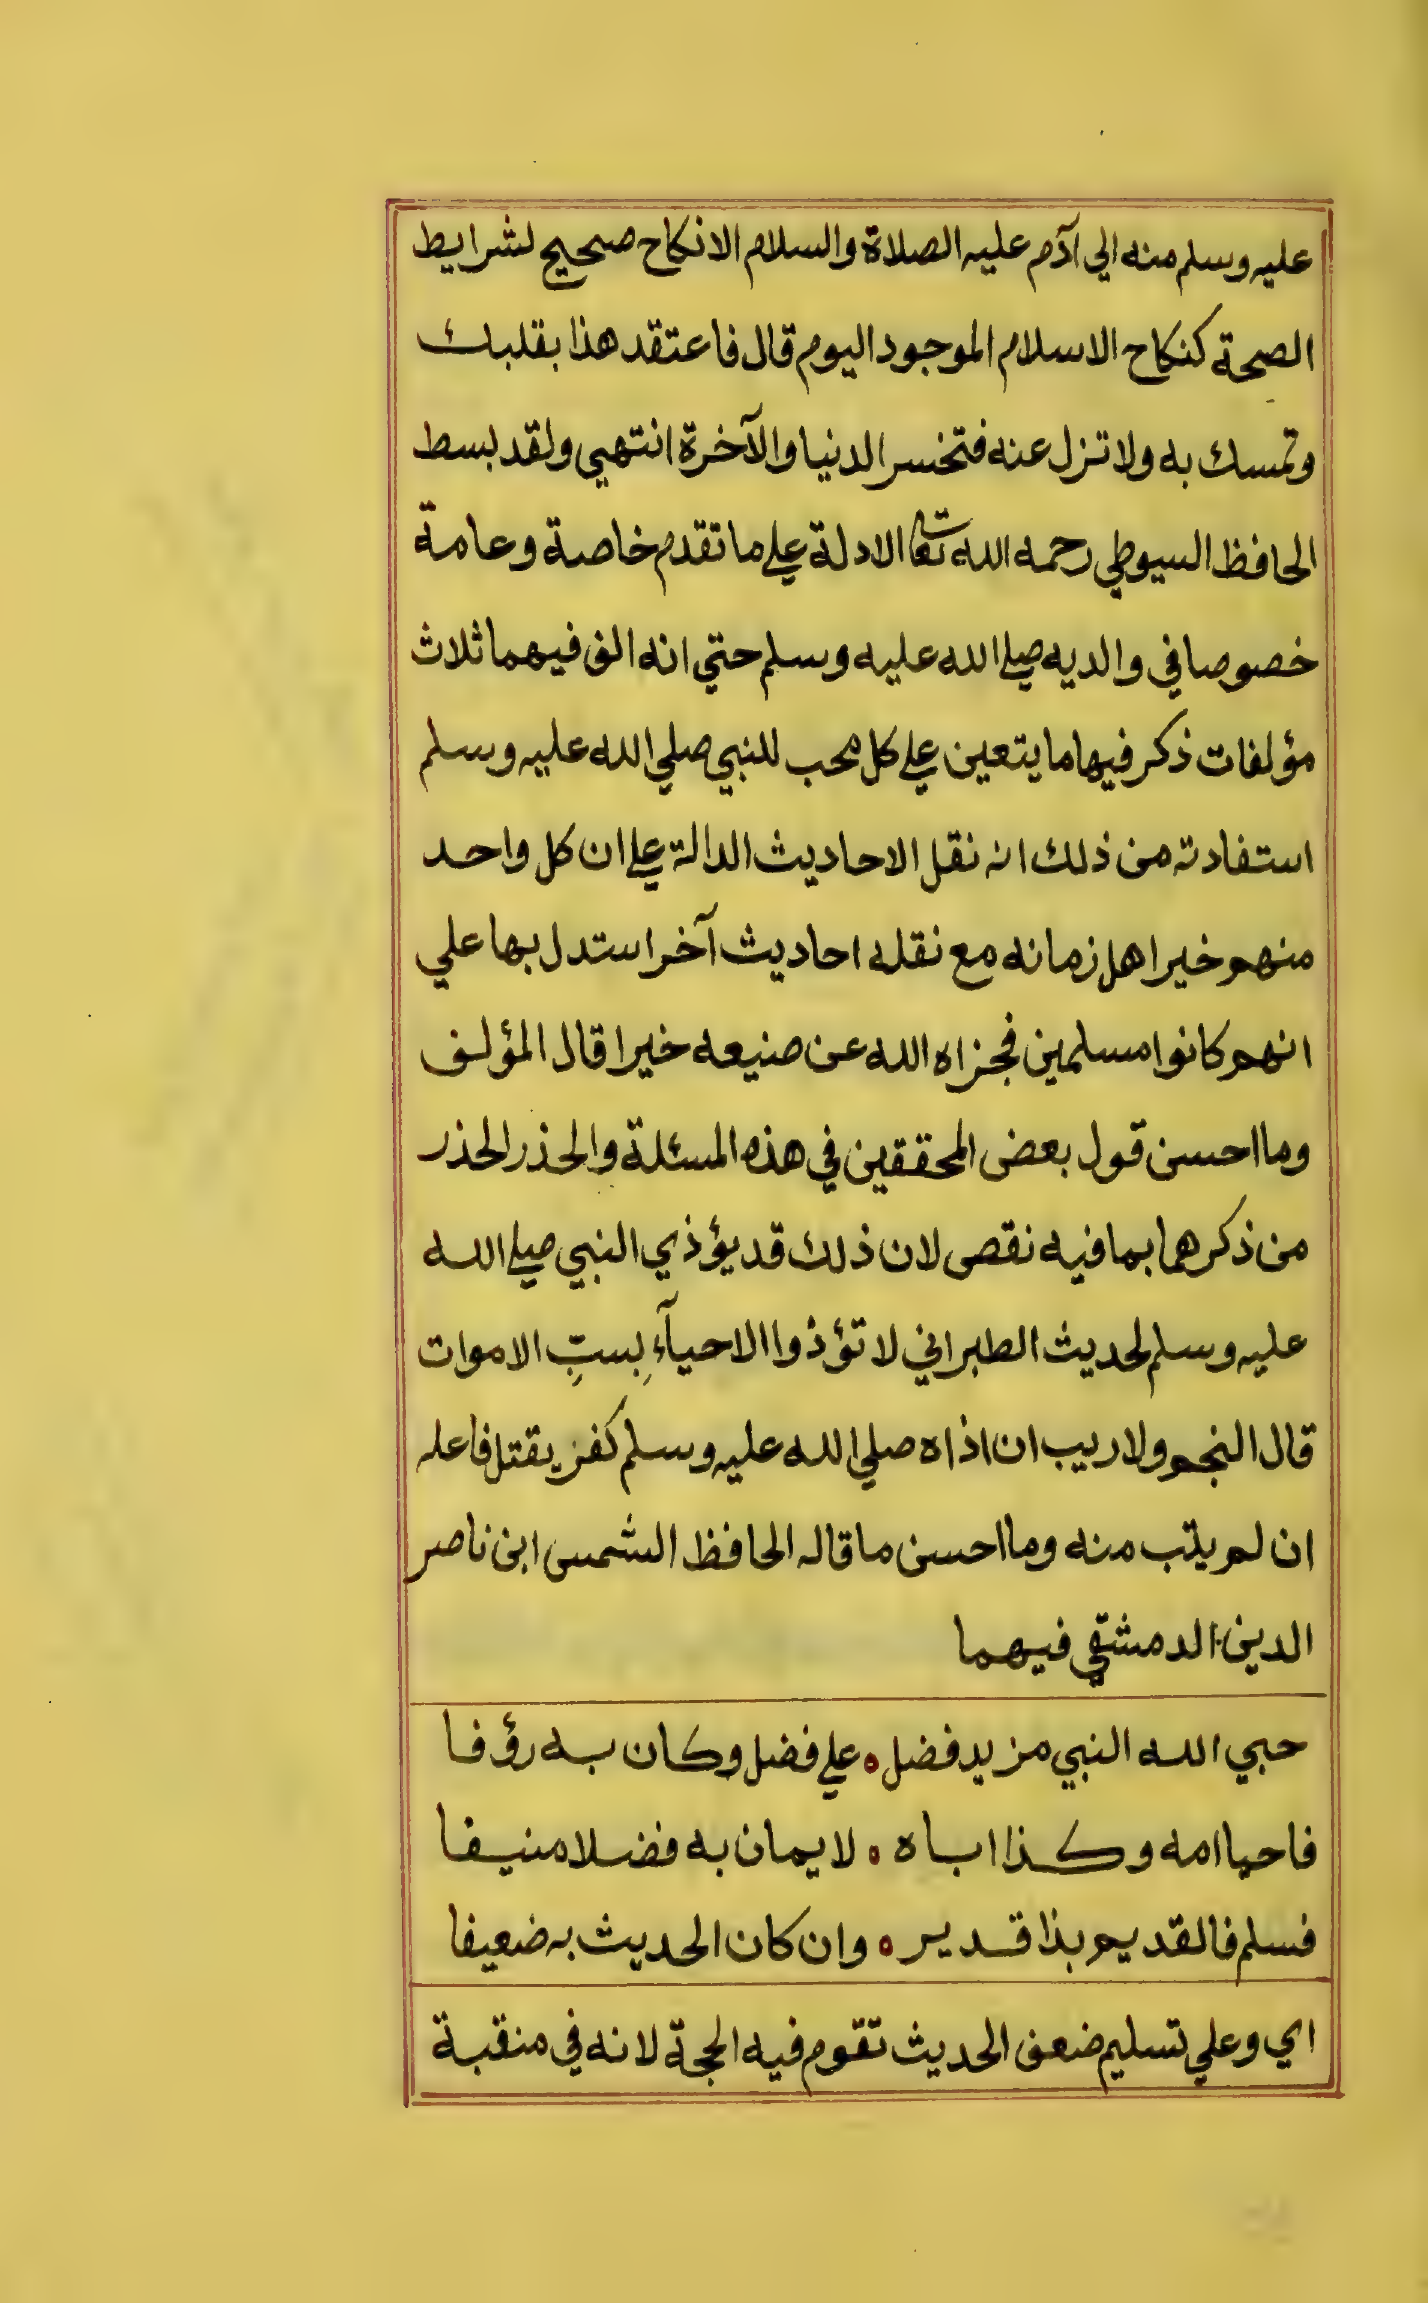 عليه وسلم منه الي آدم عليه الصلاة والسلام الانكاح صحيح لشرايط
الصحة كنكاح الاسلام الموجود اليوم قال فاعتقد هذا بقلبك
وتمسك به ولا تزل عنه فتخسر الدنيا والآخرة انتهي ولقد بسط
الحافظ السيوطي رحمه الله تعا الادلة علي ما تقدم خاصة وعامة
خصوصا في والديه صلي الله عليه وسلم حتي انه الف فيهما ثلاث
مؤلفات ذكر فيها ما يتعين علي كل محب للنبي صلي الله عليه وسلم
استفادته من ذلك انه نقل الاحاديث الدالة علي ان كل واحد
منهم خير اهل زمانه مع نقله احاديث آخر استدل بها علي
انهم كانوا مسلمين فجزاه الله عن صنيعه خيرا قال المؤلف
وما احسن قول بعض المحققين في هذه المسئلة والحذر الحذر
من ذكرهما بما فيه نقص لان ذلك قد يؤذي النبي صلي الله
عليه وسلم لحديث الطبراني لا تؤذوا الاحيآءِ بسبِّ الاموات
قال النجم ولا ريب ان اذاه صلي الله عليه وسلم كفر يقتل فاعله
ان لم يتب منه وما احسن ما قاله الحافظ الشمس ابن ناصر
الدين الدمشقي فيهما
حبي الله النبي مزيد فضل ٥ علي فضل وكان به رؤفا
فاحيا امه وكذا اباه ٥ لايمان به فضلا منيفا
فسلم فالقديم بذا قدير ٥ وان كان الحديث به ضعيفا
اي وعلي تسليم ضعف الحديث تقوم فيه الحجة لانه في منقبة